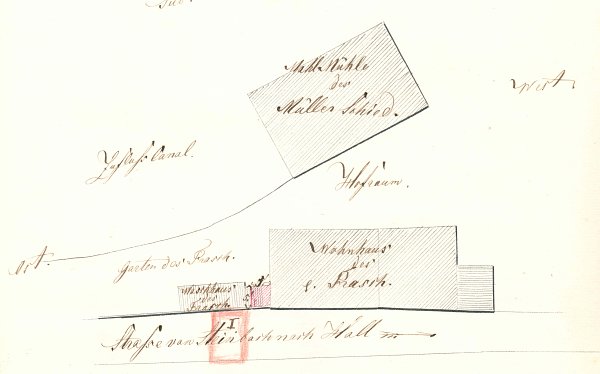 Süd.
Mahl Mühle
des
Müller Schied.
West.
Zufluß Canal.
Hofraum.
Ost.
Garten des Frasch.
Wohnhaus
des
c. Frasch.
Waschhaus
des
Frasch.
I
Straße von Steinbach nach Hall